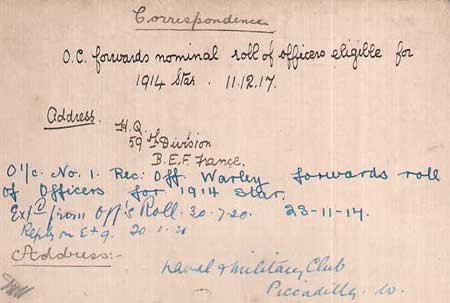 Correspondence
O.C. forwards nominal roll of officers eligible for
1914 Star. 11.12.17.
Address.
H.Q.
59th Division
B.E.F. France.
O i/c. No. 1. Rec: Off. Warley forwards roll
of Officers for 1914 Star. 23-11-17.
Exd from Off's Roll. 20.7.20.
Reply on E+9. 20.1.21
Address:-
Naval & Military Club
Piccadilly. W.